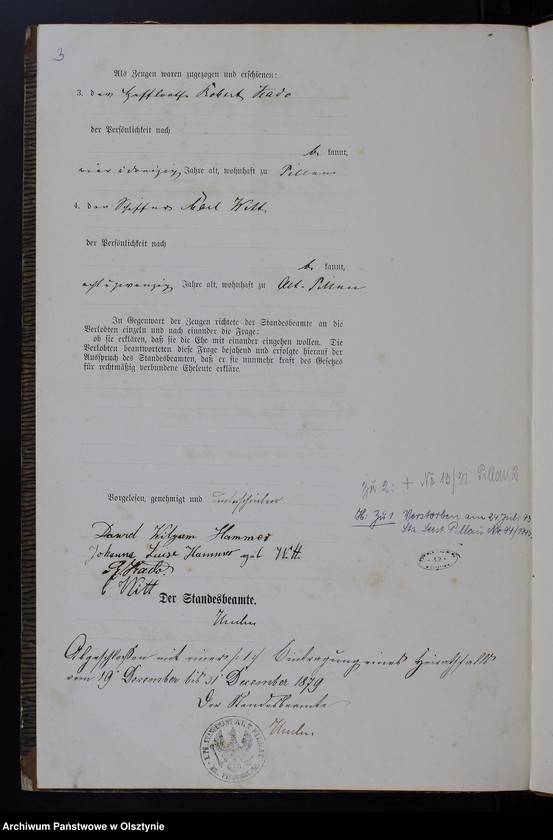 3
Als Zeugen waren zugezogen und erschienen:
3. der Robert Kado
der Persönlichkeit nach
be kannt,
vier u dreißig Jahre alt, wohnhaft zu Pillau
4. der Schiffer Carl Witt
der Persönlichkeit nach
be kannt,
acht u zwanzig Jahre alt, wohnhaft zu Alt-Pillau
In Gegenwart der Zeugen richtete der Standesbeamte an die
Verlobten einzeln und nach einander die Frage:
ob sie erklären, daß sie die Ehe mit einander eingehen wollen. Die
Verlobten beantworteten diese Frage bejahend und erfolgte hierauf der
Ausspruch des Standesbeamten, daß er sie nunmehr kraft des Gesetzes
für rechtmäßig verbundene Eheleute erkläre.
Zu 2: + No 19/ Pillau 2
Vorgelesen, genehmigt und unterschrieben
Zu 1 Verstorben am 24 Juli 43
Pillau Nr. 44/1943
David Hammer
Johanne Luise Hammer geb Witt
R. Kado
C Witt
Der Standesbeamte.
Abgeschlossen mit einer Eintragung eines Heirathsfalls
vom 19 December bis 31 December 1879
Der Standesbeamte
Archiwum Państwowe w Olsztynie